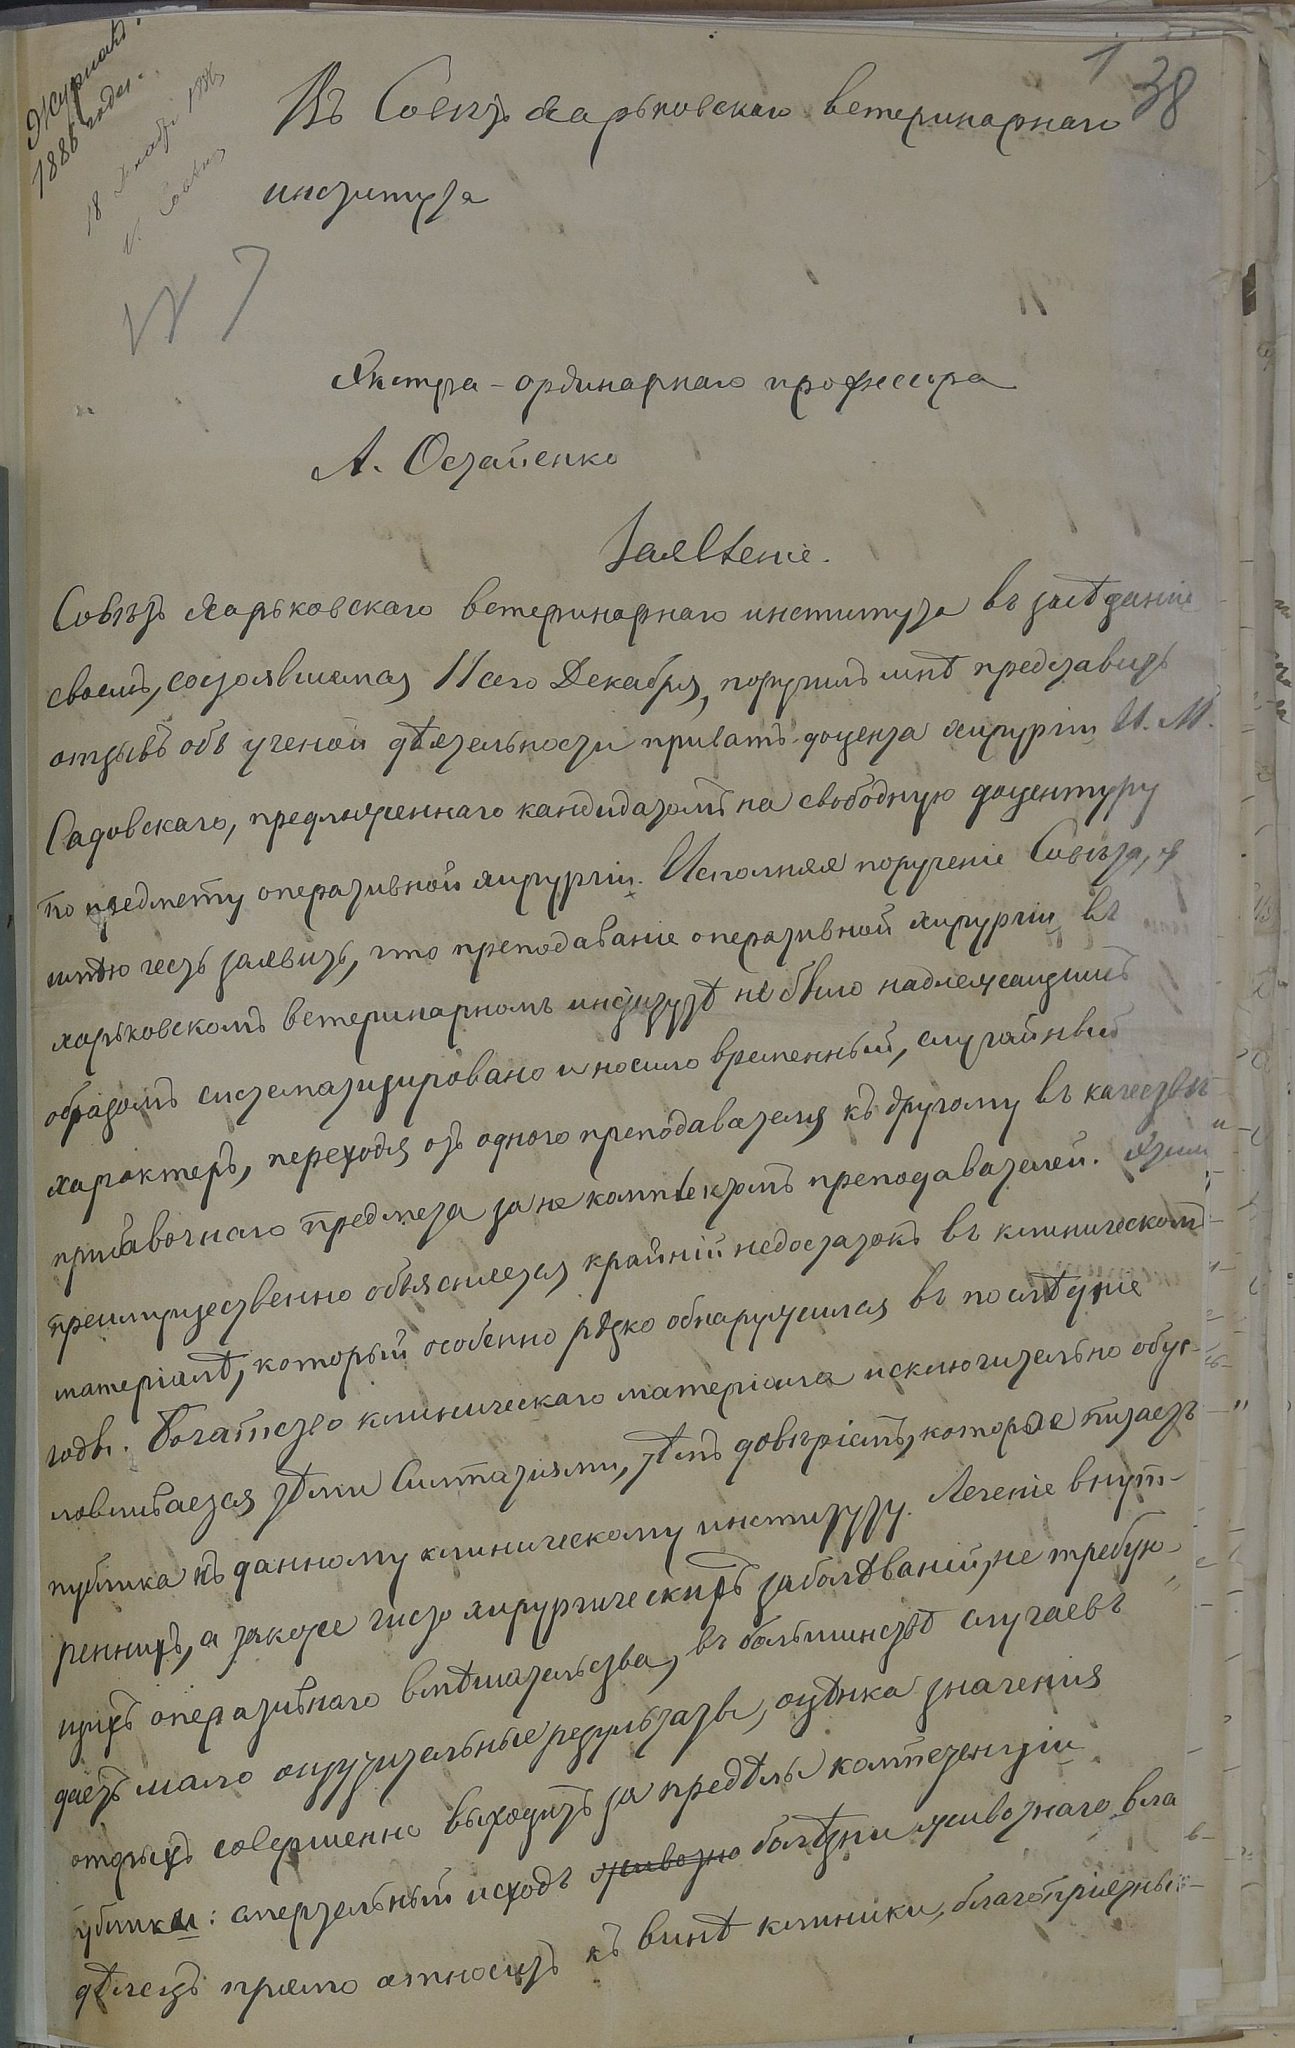 Журналъ
1886 года.
18 Декабря 1886
1 38
Въ Совѣтъ Харьковскаго ветеринарнаго
института
№ 7
Экстра-ординарнаго профессора
А. Остапенко
Заявленіе.
Совѣтъ Харьковскаго ветеринарнаго института въ засѣданіи
своемъ, состоявшемся 11 сего Декабря, поручилъ мнѣ представить
отзывъ объ ученой дѣятельности приватъ-доцента хирургіи И. М.
Садовскаго, предложеннаго кандидатомъ на свободную доцентуру
по предмету оперативной хирургіи. Исполняя порученіе Совѣта, я
имѣю честь заявить, что преподаваніе оперативной хирургіи въ
харьковскомъ ветеринарномъ институтѣ не было надлежащимъ
образомъ систематизировано и носило временный, случайный
характеръ, переходя отъ одного преподавателя къ другому въ качествѣ
прибавочнаго предмета за не комплектомъ преподавателей. Этимъ
преимущественно объясняется крайній недостатокъ въ клиническомъ
матеріалѣ, который особенно рѣзко обнаружился въ послѣдніе
годы. Богатство клиническаго матеріала исключительно обус-
ловливается тѣми симпатіями, тѣмъ довѣріемъ, которые питаетъ
публика къ данному клиническому институту. Леченіе внут-
реннихъ, а также чисто хирургическихъ заболѣваній, не требую-
щихъ оперативнаго вмѣшательства, въ большинствѣ случаевъ
даетъ мало ощутительные результаты, оцѣнка значенія
оторыхъ совершенно выходитъ за предѣлы компетенціи
ублики: смертельный исходъ животно болѣзни животнаго вла
дѣлецъ прямо относитъ къ винѣ клиники, благопріятный